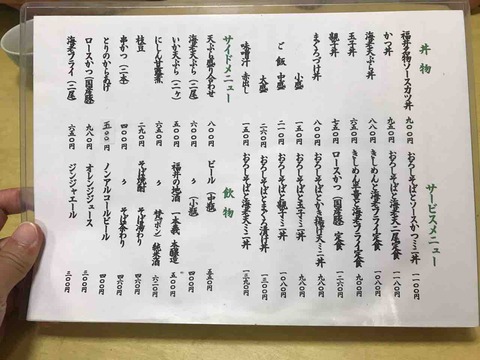 丼物
福井名物ソースカツ丼 九〇〇円
かつ丼 八八〇円
海老天ぷら丼 九五〇円
玉子丼 六五〇円
親子丼 七五〇円
まぐろづけ丼 九八〇円
小盛
ご飯 中盛 二一〇円
大盛 二六〇円
味噌汁 赤出し 一五〇円
サイドメニュー
天ぷら盛り合わせ 八〇〇円
海老天ぷら(二尾) 六〇〇円
いか天ぷら(二ケ) 五〇〇円
にしん甘露煮 六〇〇円
枝豆 二九〇円
串かつ(二本) 四〇〇円
とりのからあげ 五〇〇円
ロースかつ(国産豚) 九八〇円
海老フライ(二尾) 六五〇円
サービスメニュー
おろしそばとソースかつミニ丼 一一〇〇円
おろしそばと海老天二尾定食 一一八〇円
きしめんと海老フライ定食 一〇八〇円
きしめん半量と海老フライ定食
ロースかつ(国産豚)定食 一二六〇円
おろしそばとかき揚げ天ミニ丼 九八〇円
おろしそばと玉子ミニ丼 九八〇円
おろしそばと親子ミニ丼 一〇八〇円
おろしそばとまぐろ漬け丼 一三〇〇円
おろしそばと海老天ミニ丼 一三九〇円
飲物
ビール(中瓶) 五五〇円
〃(小瓶) 四〇〇円
福井の地酒(一本義 本醸造) 五〇〇円
〃(梵ボン 純米酒) 六二〇円
そば焼酎 四〇〇円
〃 そば湯わり 四六〇円
〃 そば茶わり 四六〇円
ノンアルコールビール 四〇〇円
オレンジジュース 三〇〇円
ジンジャエール 三〇〇円